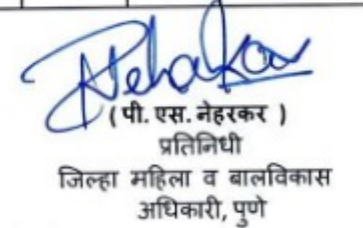 ( पी. एस. नेहरकर )
प्रतिनिधी
जिल्हा महिला व बालविकास
अधिकारी, पुणे